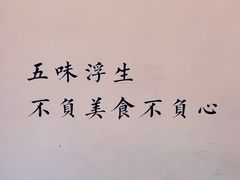 五味浮生
不負美食不負心